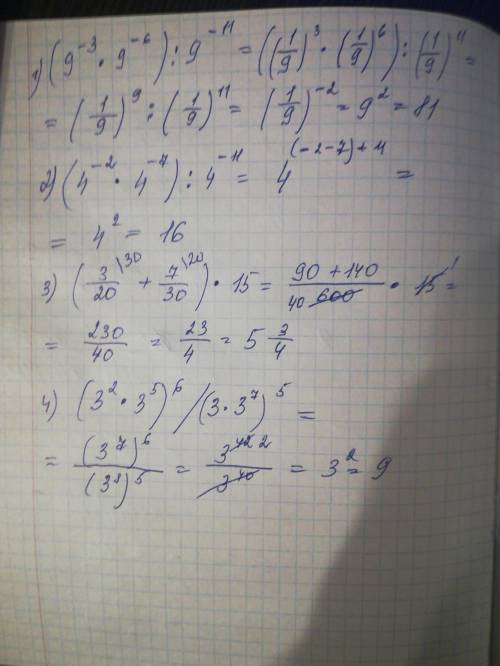 1) (9⁻³ · 9⁻⁶) : 9⁻¹¹ = ((1/9)³ · (1/9)⁶) : (1/9)¹¹ =
= (1/9)⁹ : (1/9)¹¹ = (1/9)⁻² = 9² = 81
2) (4⁻² · 4⁻⁷) : 4⁻¹¹ = 4⁽⁻²⁻⁷⁾⁺¹¹ =
= 4² = 16
3) (3/20 \30 + 7/30 \20) · 15 = (90 + 140)/(40 600) · 15 1 =
= 230/40 = 23/4 = 5 3/4
4) (3² · 3⁵)⁶ / (3 · 3⁷)⁵ =
= (3⁷)⁶/(3⁸)⁵ = 3⁴² ²/3⁴⁰ = 3² = 9